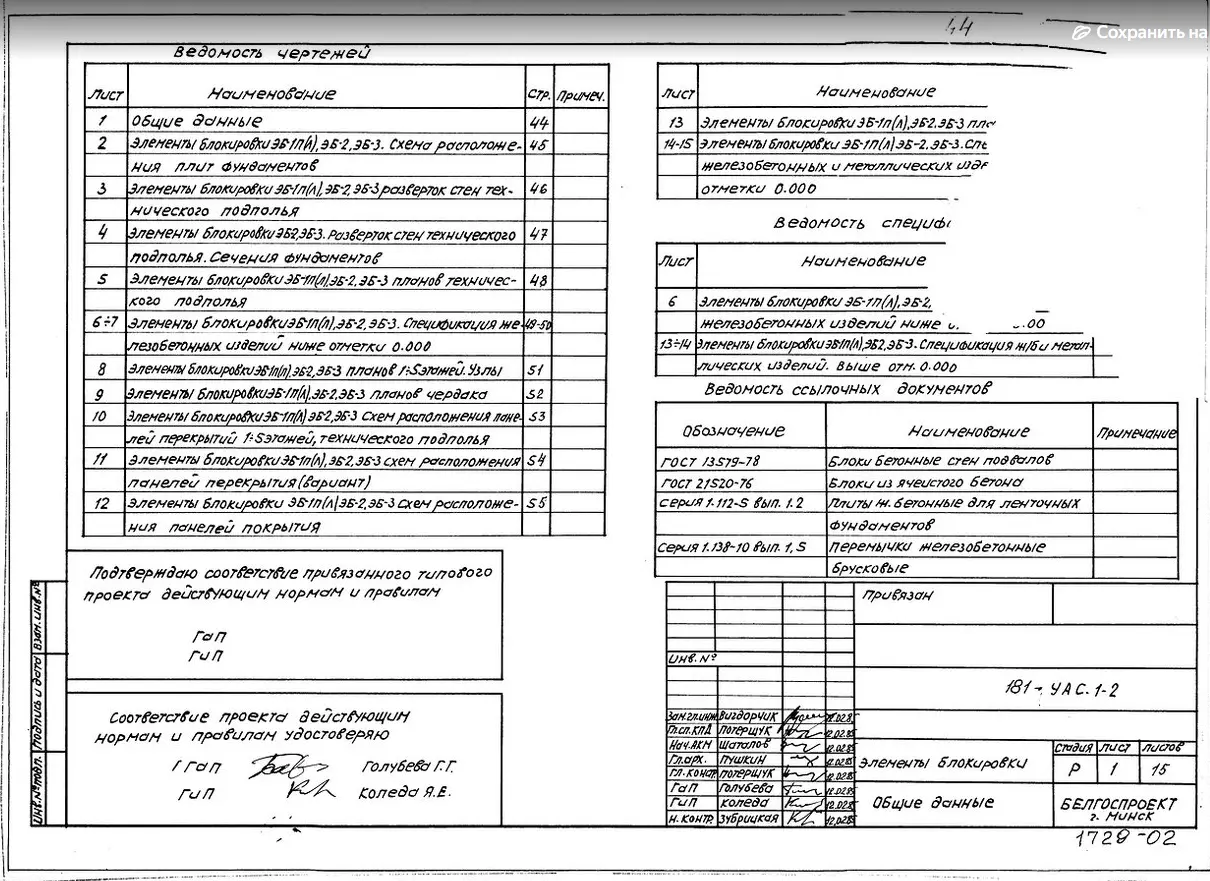 44
Сохранить на
Ведомость чертежей
Лист Наименование Стр. Примеч.
1 Общие данные 44
2 Элементы блокировки ЭБ-1п(л), ЭБ-2, ЭБ-3. Схема расположе- 45
ния плит фундаментов
3 Элементы блокировки ЭБ-1п(л), ЭБ-2, ЭБ-3 разверток стен тех- 46
нического подполья
4 Элементы блокировки ЭБ2, ЭБ-3. Разверток стен технического 47
подполья. Сечения фундаментов
5 Элементы блокировки ЭБ-1п(л), ЭБ-2, ЭБ-3 планов техничес- 48
кого подполья
6÷7 Элементы блокировки ЭБ-1п(л), ЭБ-2, ЭБ-3. Спецификация же- 49-50
лезобетонных изделий ниже отметки 0.000
8 Элементы блокировки ЭБ-1п(л), ЭБ-2, ЭБ-3 планов 1÷5 этажей. Узлы 51
9 Элементы блокировки ЭБ-1п(л), ЭБ-2, ЭБ-3 планов чердака 52
10 Элементы блокировки ЭБ-1п(л), ЭБ-2, ЭБ-3 Схем расположения пане- 53
лей перекрытий 1÷5 этажей, технического подполья
11 Элементы блокировки ЭБ-1п(л), ЭБ-2, ЭБ-3 схем расположения 54
панелей перекрытия (вариант)
12 Элементы блокировки ЭБ-1п(л), ЭБ-2, ЭБ-3 Схем расположе- 55
ния панелей покрытия
Лист Наименование
13 Элементы блокировки ЭБ-1п(л), ЭБ-2, ЭБ-3 пла
14-15 Элементы блокировки ЭБ-1п(л) ЭБ-2, ЭБ-3. Спе
железобетонных и металлических изде
отметки 0.000
Ведомость специф
Лист Наименование
6 Элементы блокировки ЭБ-1п(л), ЭБ-2,
железобетонных изделий ниже о. .00
13÷14 Элементы блокировки ЭБ-1п(л), ЭБ2, ЭБ-3. Спецификация ж/б и метал-
лических изделий. Выше отм. 0.000
Ведомость ссылочных документов
Обозначение Наименование Примечание
ГОСТ 13579-78 Блоки бетонные стен подвалов
ГОСТ 21520-76 Блоки из ячеистого бетона
Серия 1.112-5 вып. 1.2 Плиты ж. бетонные для ленточных
фундаментов
Серия 1.138-10 вып. 1, 5 Перемычки железобетонные
брусковые
Подтверждаю соответствие привязанного типового
проекта действующим нормам и правилам
ГаП
ГиП
Соответствие проекта действующим
нормам и правилам удостоверяю
ГГап Голубева Г.Г.
ГиП Коледа Я.Е.
Взам. инв. №
Подпись и дата
Инв. № подл.
Привязан
Инв. №
181- УАС.1-2
Зам.гл.инж Вигдорчик 12.02.85
Гл.сп.КПД Потерщук 12.02.85
Нач.АКМ Шаталов 12.02.85
Гл.арх. Пушкин 12.02.85
Гл.констр Потерщук 12.02.85
ГаП Голубева 12.02.85
ГиП Коледа 12.02.85
Н.контр. Зубрицкая 12.02.85
Элементы блокировки
Стадия Лист Листов
Р 1 15
Общие данные
БЕЛГОСПРОЕКТ
г. Минск
1729-02